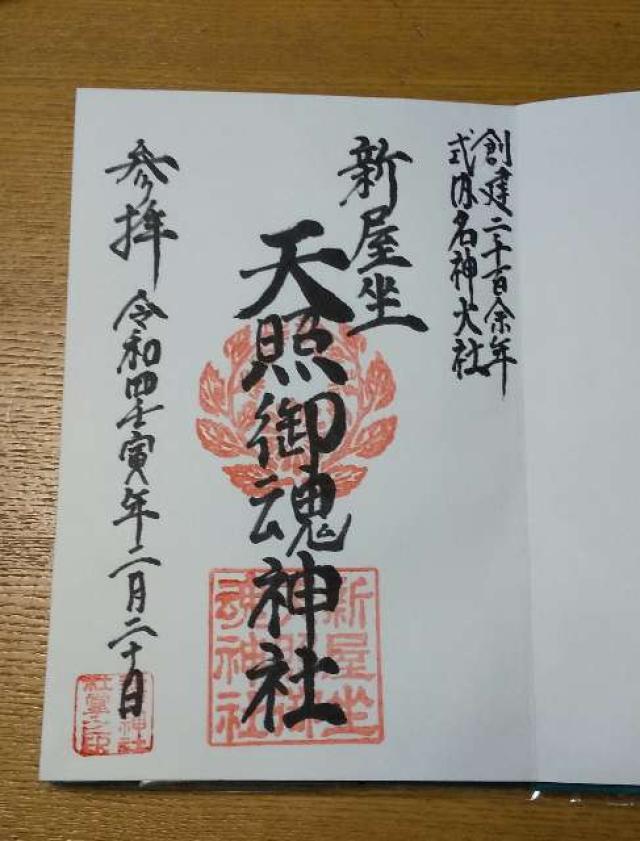 創建二千百余年
式内名神大社
新屋坐
天照御魂神社
新屋坐
天照御
魂神社
参拝 令和四壬寅年二月二十日